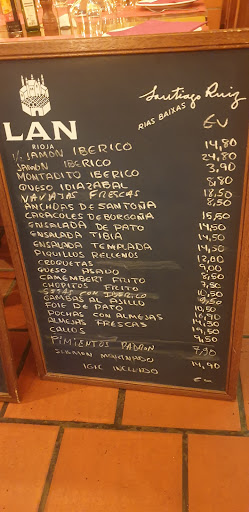 LAN
RIOJA
Santiago Ruiz
RIAS BAIXAS
EU
1/2 JAMON IBERICO 14,80
JAMON IBERICO 24,80
MONTADITO IBERICO 3,90
QUESO IDIAZABAL 8,80
FRESCAS 18,50
ANCHOAS DE SANTOÑA 8,50
CARACOLES DE BORGOÑA 15,50
ENSALADA DE PATO 14,50
ENSALADA TIBIA 14,50
ENSALADA TEMPLADA 14,50
PIQUILLOS RELLENOS
CROQUETAS
QUESO ASADO
CAMEMBERT FRITO 8,50
CHOPITOS FRITO
CON IBERICO
GAMBAS AL AJILLO
FOIE DE PATO 10,50
POCHAS CON ALMEJAS
ALMEJAS FRESCAS
CALLOS
PIMIENTOS PADRON
14,90
IGIC INCLUIDO
EU